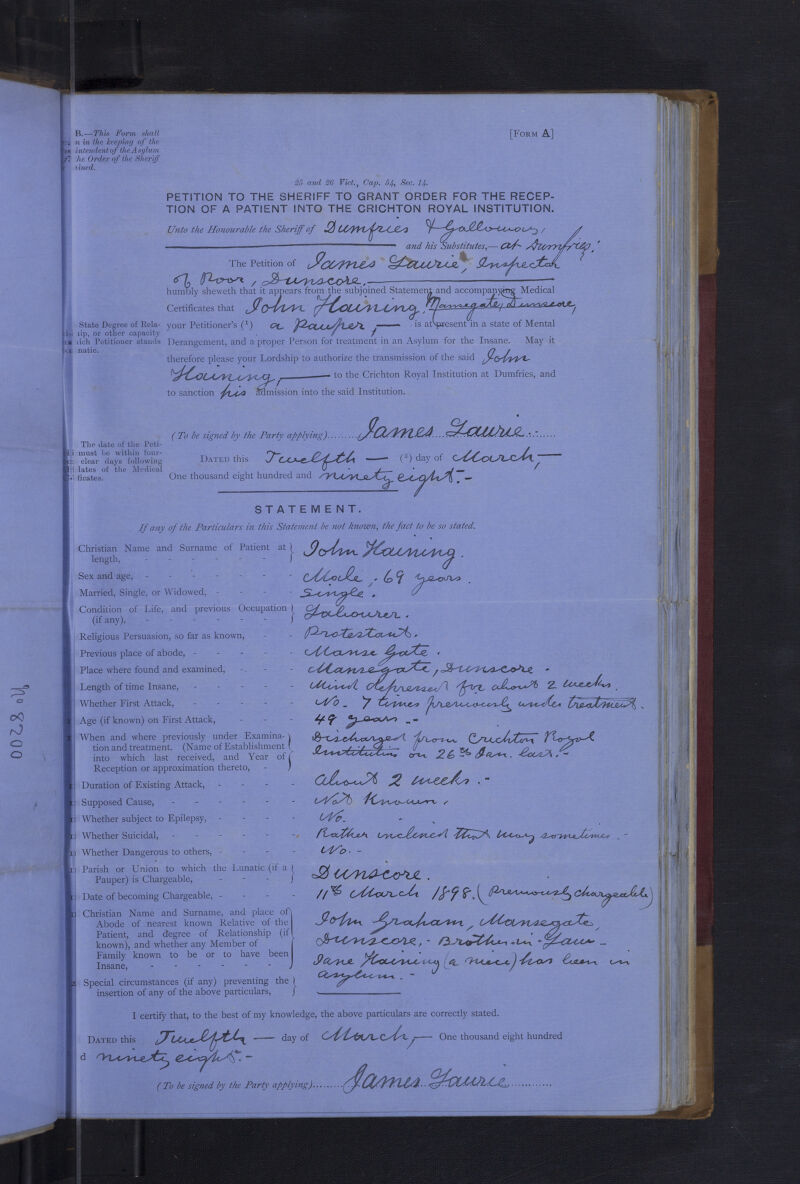 B.—This Form shall
n in the keeping of the
intendent of the Asylum
he Order of the Sheriff
ained.
[FORM A]
25 and 26 Vict., Cap. 54, Sec. 14.
PETITION TO THE SHERIFF TO GRANT ORDER FOR THE RECEP-
TION OF A PATIENT INTO THE CRICHTON ROYAL INSTITUTION.
Unto the Honourable the Sheriff of Dumfries & Galloway,
and his Substitutes,— at Dumfries.
The Petition of James Laurie, Inspector
of Poor, Dunscore,
humbly sheweth that it appears from the subjoined Statement and accompanying Medical
Certificates that John Haining, Mansegate, Dunscore,
State Degree of Rela-
ip, or other capacity
ich Petitioner stands
natic.
your Petitioner's (¹) a Pauper,— is at present in a state of Mental
Derangement, and a proper Person for treatment in an Asylum for the Insane. May it
therefore please your Lordship to authorize the transmission of the said John
Haining, to the Crichton Royal Institution at Dumfries, and
to sanction his admission into the said Institution.
(To be signed by the Party applying) James Laurie.
The date of the Peti-
must be within four-
clear days following
dates of the Medical
ficates.
DATED this Twelfth — (²) day of March,—
One thousand eight hundred and ninety eight.-
STATEMENT.
If any of the Particulars in this Statement be not known, the fact to be so stated.
Christian Name and Surname of Patient at length, John Haining.
Sex and age, Male, 69 years.
Married, Single, or Widowed, Single.
Condition of Life, and previous Occupation (if any), Labourer.
Religious Persuasion, so far as known, Protestant.
Previous place of abode, Manse Gate.
Place where found and examined, Mansegate, Dunscore.
Length of time Insane, Mind depressed for about 2 weeks.
Whether First Attack, No. 7 times previously under treatment.
Age (if known) on First Attack, 49 years.-
When and where previously under Examina- Discharged from Crichton Royal
tion and treatment. (Name of Establishment Institution on 26th Jan. last.-
into which last received, and Year of
Reception or approximation thereto,
Duration of Existing Attack, About 2 weeks.-
Supposed Cause, Not Known,
Whether subject to Epilepsy, No.
Whether Suicidal, Rather inclined that way sometimes.-
Whether Dangerous to others, No.-
Parish or Union to which the Lunatic (if a Pauper) is Chargeable, Dunscore.
Date of becoming Chargeable, 11th March 1898. (Previously chargeable)
Christian Name and Surname, and place of John Graham, Mansegate,
Abode of nearest known Relative of the
Patient, and degree of Relationship (if Dunscore,- Brother-in-Law-
known), and whether any Member of
Family known to be or to have been Jane Haining (a niece) has been in
Insane, asylum.-
Special circumstances (if any) preventing the
insertion of any of the above particulars,
I certify that, to the best of my knowledge, the above particulars are correctly stated.
DATED this Twelfth — day of March,— One thousand eight hundred
d ninety eight.-
(To be signed by the Party applying) James Laurie
No 8200